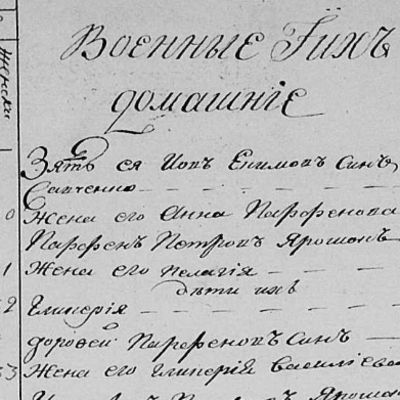 Женски
Военные Іихъ
домашніе
Зять ея Іовъ Екимовъ синъ
Савченко
0 Жена его Анна Парфенова
Парфенъ Петровъ Ярошонъ
1 Жена его Пелагія
дѣти ихъ
2 Гликерія
дорофей Парфеновъ синъ
53 Жена его Гликерія Василіева